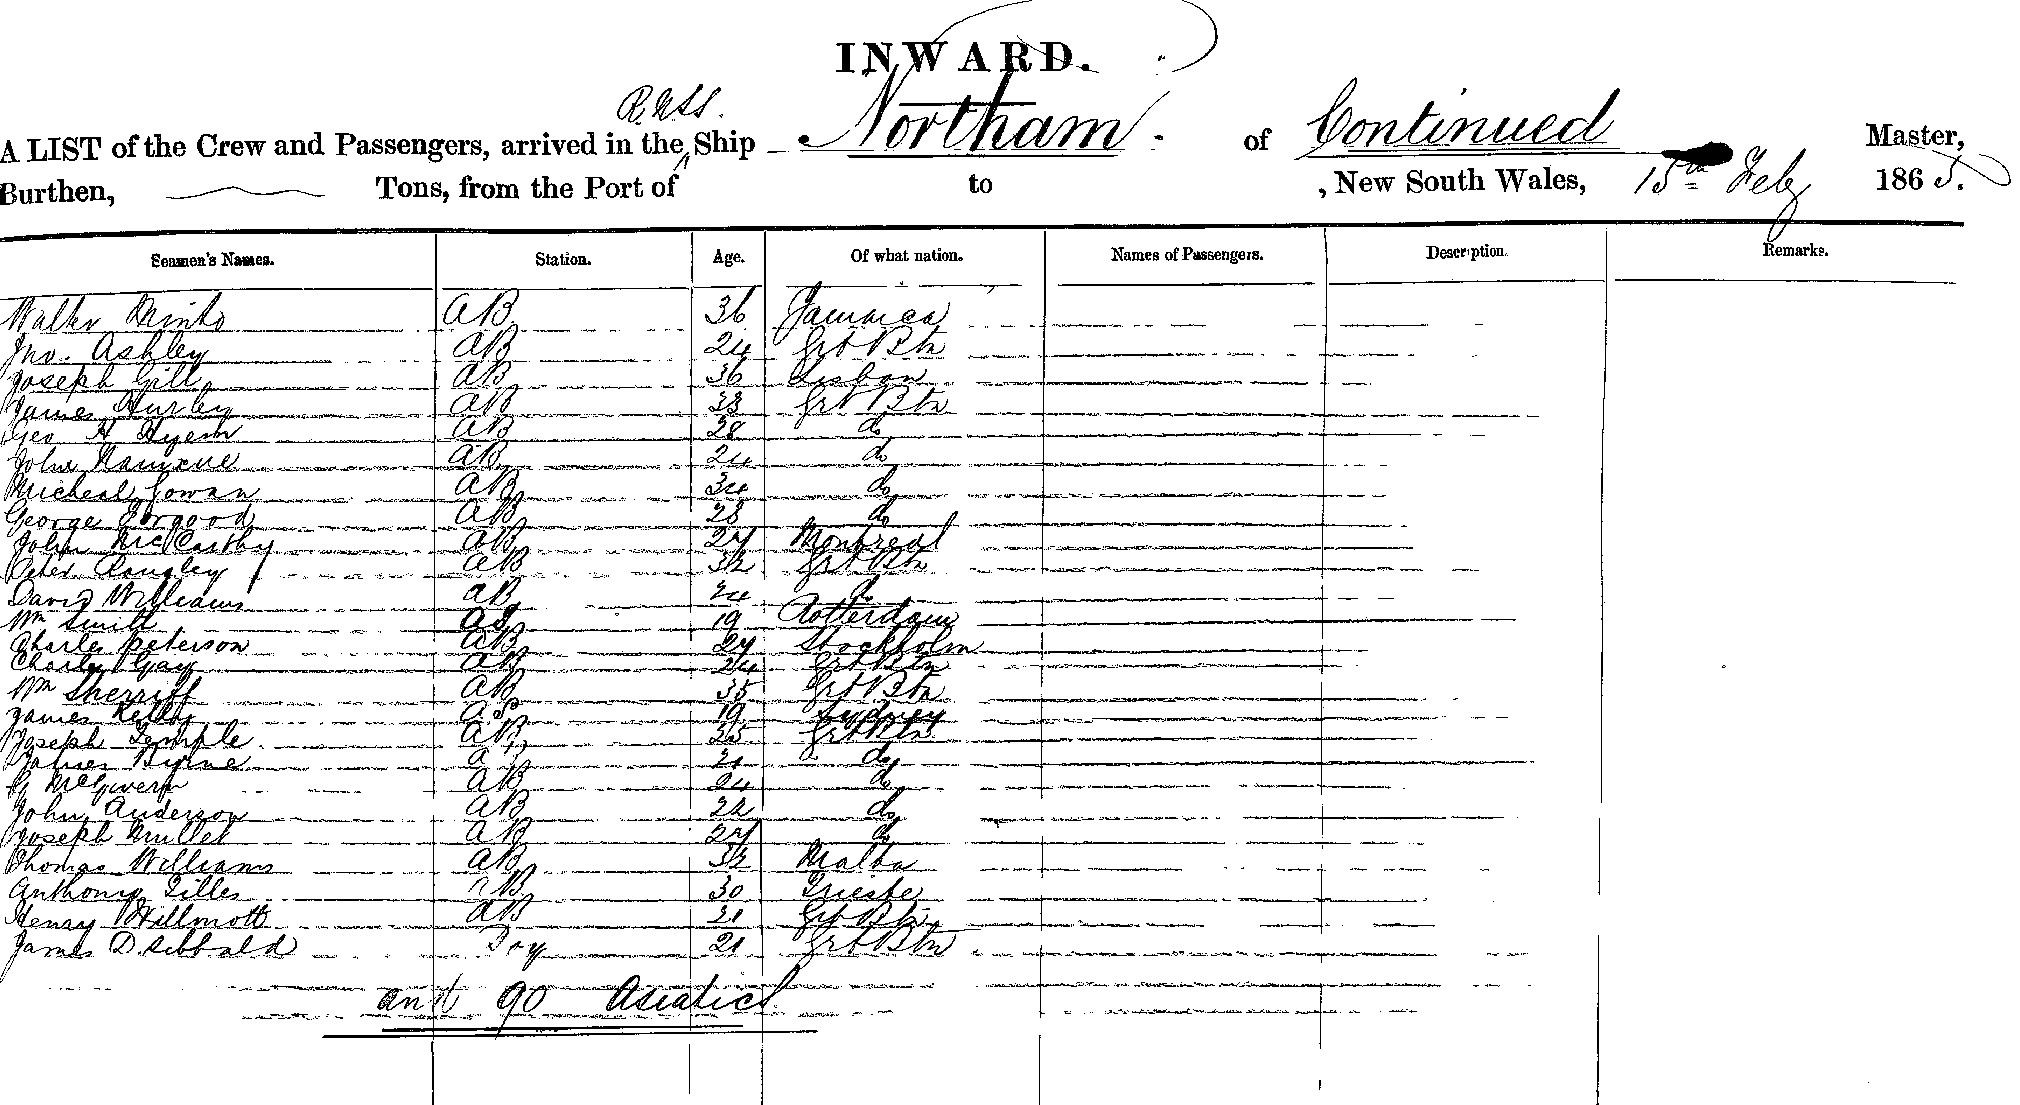 INWARD.
R.M.SS.
A LIST of the Crew and Passengers, arrived in the Ship Northam of Continued Master,
Burthen, Tons, from the Port of to , New South Wales, 15th Feby 1865.
Seamen's Names. Station. Age. Of what nation. Names of Passengers. Description. Remarks.
Walter Minto AB 36 Jamaica
Jno. Ashley AB 24 Grt Btn
Joseph Gill AB 36 Lisbon
James Hurley AB 33 Grt Btn
Geo H Hyem AB 28 do
John AB 24 do
Micheal Gowan AB 34 do
George AB 28 do
John McCarthy AB 27 Montreal
Peter Langley AB 32 Grt Btn
David Williams AB 24 do
Wm Smith 19 Rotterdam
Charles Peterson AB 27 Stockholm
Charles Gay AB 24 Grt Btn
Wm Sherriff AB 35 Grt Btn
James Kelly 19 Sydney
Joseph Temple AB 25 Grt Btn
James Byrne 21 do
McGivern AB 24 do
John Anderson AB 22 do
Joseph Mullet AB 27 do
Thomas Williams AB 32 Malta
Anthony Tilles AB 30 Trieste
Henry Willmott AB 21 Grt Btn
James D. Sibbald Boy 21 Grt Btn
and 90 Asiatics